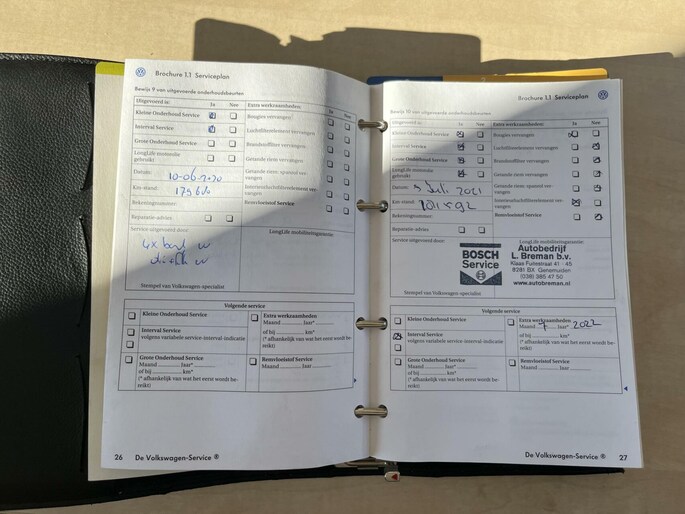 Brochure 1.1 Serviceplan
Bewijs 9 van uitgevoerde onderhoudsbeurten
Uitgevoerd is: Ja Nee
Kleine Onderhoud Service
Interval Service
Grote Onderhoud Service
LongLife motorolie
gebruikt:
Datum: 10-06-2020
Km-stand:
Rekeningnummer:
Reparatie-advies
Extra werkzaamheden: Ja Nee
Bougies vervangen
Luchtfilterelement vervangen
Brandstoffilter vervangen
Getande riem vervangen
Getande riem: spanrol ver-
vangen
Interieurluchtfilterelement ver-
vangen
Remvloeistof Service
Service uitgevoerd door:
4x band
Stempel van Volkswagen-specialist
LongLife mobiliteitsgarantie:
Volgende service
Kleine Onderhoud Service
Interval Service
volgens variabele service-interval-indicatie
Grote Onderhoud Service
Maand ........... jaar*...........
of bij ........... km*
(* afhankelijk van wat het eerst wordt be-
reikt)
Extra werkzaamheden
Maand ........... jaar* ...........
of bij ........... km*
(* afhankelijk van wat het eerst wordt be-
reikt)
Remvloeistof Service
Maand ........... jaar* ...........
26 De Volkswagen-Service ®
Brochure 1.1 Serviceplan
Bewijs 10 van uitgevoerde onderhoudsbeurten
Uitgevoerd is: Ja Nee
Kleine Onderhoud Service
Interval Service
Grote Onderhoud Service
LongLife motorolie
gebruikt:
Datum: 9 Juli 2021
Km-stand:
Rekeningnummer:
Reparatie-advies
Extra werkzaamheden: Ja Nee
Bougies vervangen
Luchtfilterelement vervangen
Brandstoffilter vervangen
Getande riem vervangen
Getande riem: spanrol ver-
vangen
Interieurluchtfilterelement ver-
vangen
Remvloeistof Service
Service uitgevoerd door:
BOSCH
Service
Stempel van Volkswagen-specialist
LongLife mobiliteitsgarantie:
Autobedrijf
L. Breman b.v.
Klaas Fuitestraat 41 - 45
8281 BX Genemuiden
(038) 385 47 50
www.autobreman.nl
Volgende service
Kleine Onderhoud Service
Interval Service
volgens variabele service-interval-indicatie
Grote Onderhoud Service
Maand ........... jaar*...........
of bij ........... km*
(* afhankelijk van wat het eerst wordt be-
reikt)
Extra werkzaamheden
Maand 7 jaar* 2022
of bij ........... km*
(* afhankelijk van wat het eerst wordt be-
reikt)
Remvloeistof Service
Maand ........... jaar* ...........
De Volkswagen-Service ® 27